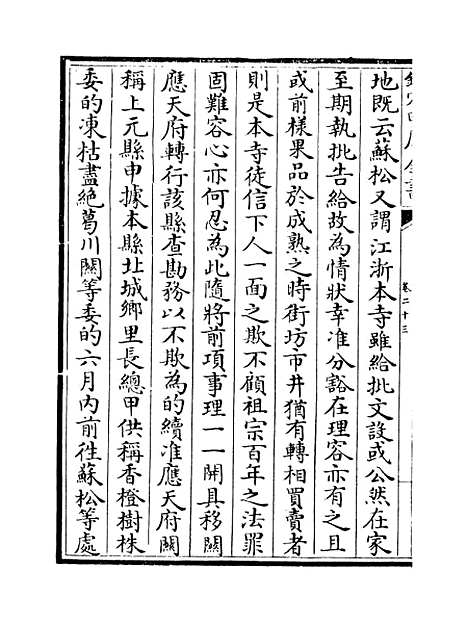 地既云蘇松又謂江浙本寺雖給批文設或公然在家
至期執批告給故為情狀幸准分豁在理容亦有之且
或前様果品於成熟之時街坊市井猶有轉相買賣者
則是本寺徒信下人一面之欺不顧祖宗百年之法罪
固難容心亦何忍為此隨將前項事理一一開具移關
應天府轉行該縣查勘務以不欺為的續准應天府關
稱上元縣申據本縣北城鄉里長總甲供稱香橙樹株
委的凍枯盡絕葛川關等委的六月內前往蘇松等處
卷二十三